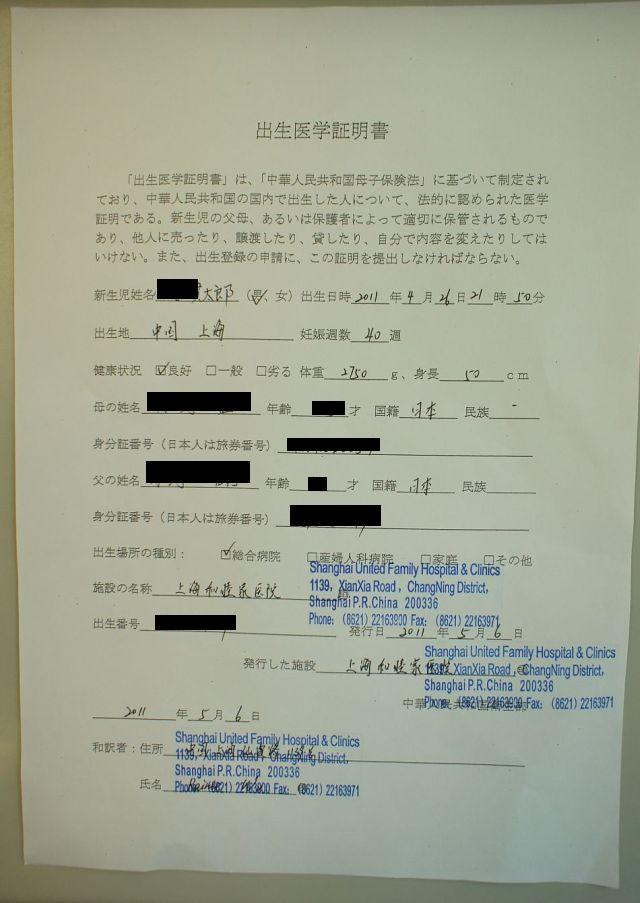 出生医学証明書
「出生医学証明書」は、「中華人民共和国母子保険法」に基づいて制定され
ており、中華人民共和国の国内で出生した人について、法的に認められた医学
証明である。新生児の父母、あるいは保護者によって適切に保管されるもので
あり、他人に売ったり、譲渡したり、貸したり、自分で内容を変えたりしては
いけない。また、出生登録の申請に、この証明を提出しなければならない。
新生児姓名 太郎 (男、女) 出生日時 2011 年 4 月 26 日 21 時 50 分
出生地 中国 上海 妊娠週数 40 週
健康状況 ☑良好 □一般 □劣る 体重 2750 g、身長 50 cm
母の姓名 年齢 才 国籍 日本 民族 -
身分証番号(日本人は旅券番号)
父の姓名 年齢 才 国籍 日本 民族
身分証番号(日本人は旅券番号)
出生場所の種別: ☑総合病院 □産婦人科病院 □家庭 □その他
Shanghai United Family Hospital & Clinics
1139, XianXia Road, ChangNing District,
施設の名称 上海和睦家医院
Shanghai P.R.China 200336
Phone: (8621) 22163900 Fax: (8621) 22163971
出生番号
発行日 2011 年 5 月 6 日
Shanghai United Family Hospital & Clinics
発行した施設 上海和睦家医院
1139, XianXia Road, ChangNing District,
Shanghai P.R.China 200336
中華人民共和国衛生部
Phone: (8621) 22163900 Fax: (8621) 22163971
2011 年 5 月 6 日
Shanghai United Family Hospital & Clinics
和訳者:住所 中国上海仙霞路1139号
1139, XianXia Road, ChangNing District,
Shanghai P.R.China 200336
氏名
Phone: (8621) 22163900 Fax: (8621) 22163971